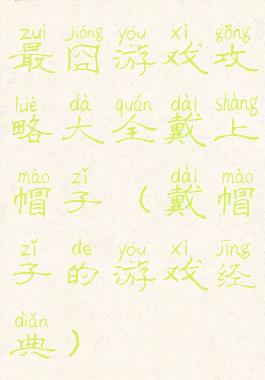 zuì jiǒng yóu xì gōng
最囧游戏攻
lüè dà quán dài shàng
略大全戴上
mào zǐ dài mào
帽子（戴帽
zǐ de yóu xì jīng
子的游戏经
diǎn
典）